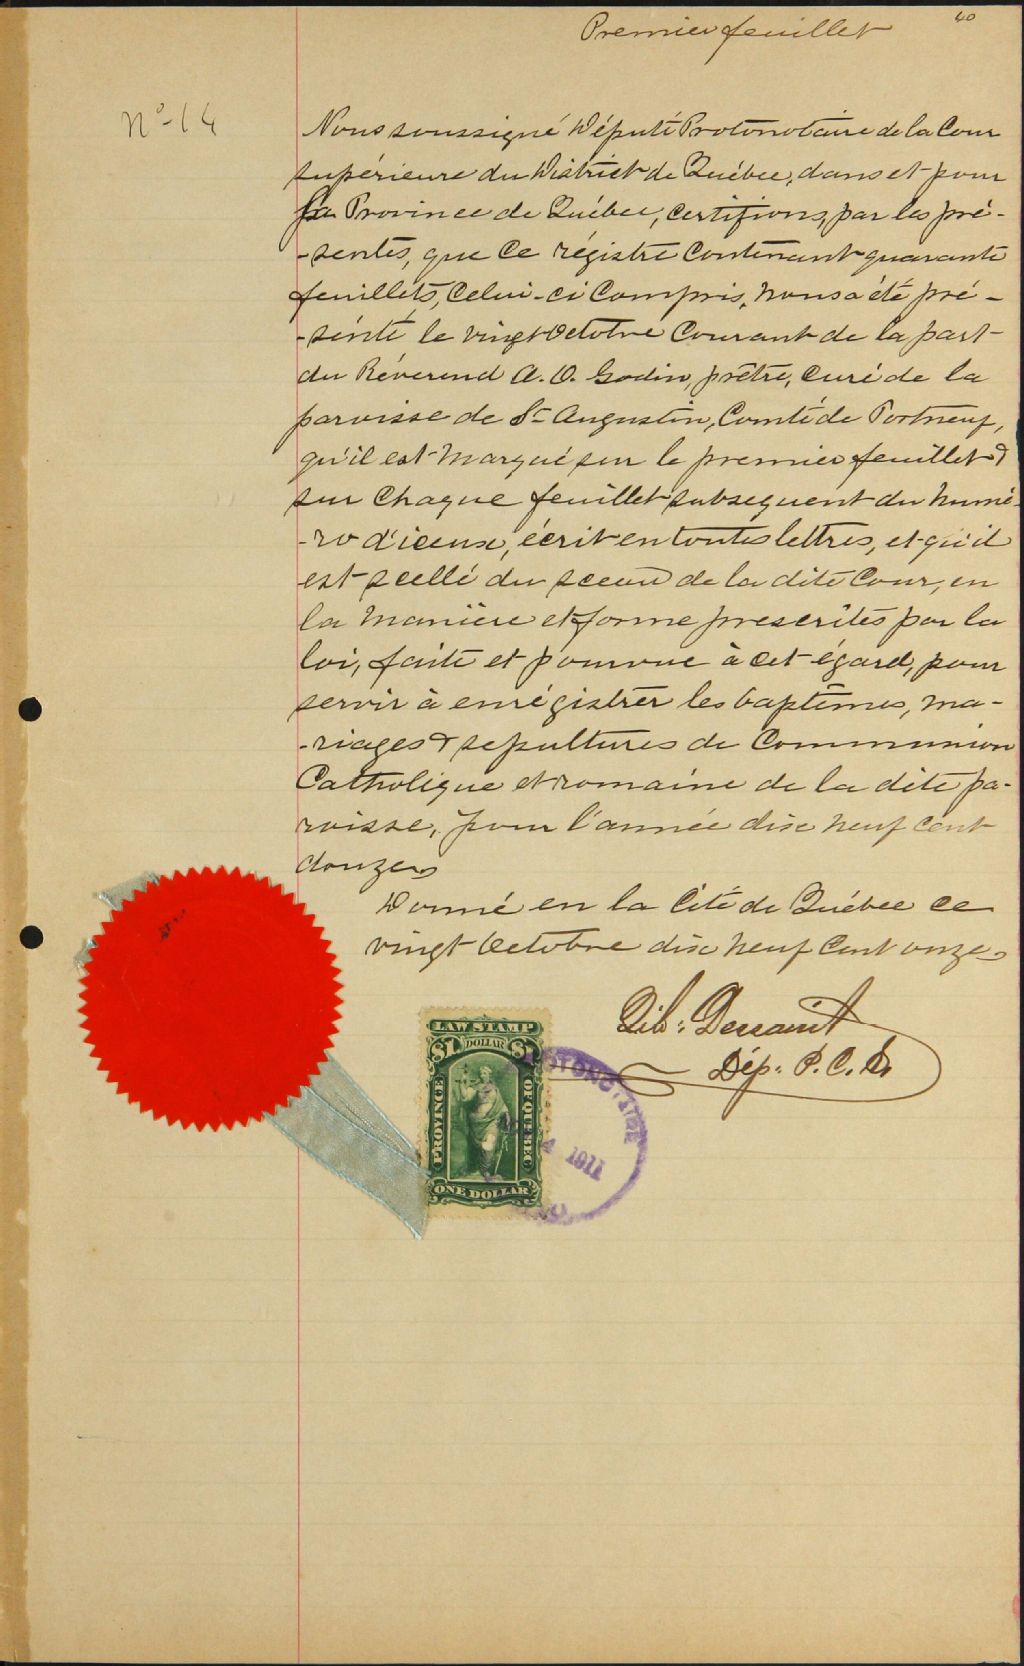 Premier feuillet
40
N°-14
Nous soussigné Député Protonotaire de la Cour
supérieure du District de Québec, dans et pour
la Province de Québec, certifions, par les pré-
-sentes, que ce régistre contenant quarante
feuillets, celui-ci compris, nous a été pré-
-senté le vingt Octobre courant de la part
du Révérend A. O. Godin, prêtre, curé de la
paroisse de St Augustin, Comté de Portneuf,
qu'il est marqué sur le premier feuillet &
sur chaque feuillet subsequent du numé-
-ro d'iceux, écrit en toutes lettres, et qu'il
est scellé du sceau de la dite Cour, en
la manière et forme prescrites par la
loi, faite et pourvue à cet égard, pour
servir à enrégistrer les baptêmes, ma-
-riages & sepultures de Communion
Catholique et romaine de la dite pa-
roisse, pour l'année dix neuf cent
douze
Donné en la Cité de Québec ce
vingt Octobre dix neuf cent onze
Dép. P. C. S.
LAW STAMP
$1 DOLLAR $1
PROVINCE OF QUEBEC
ONE DOLLAR
4 1911